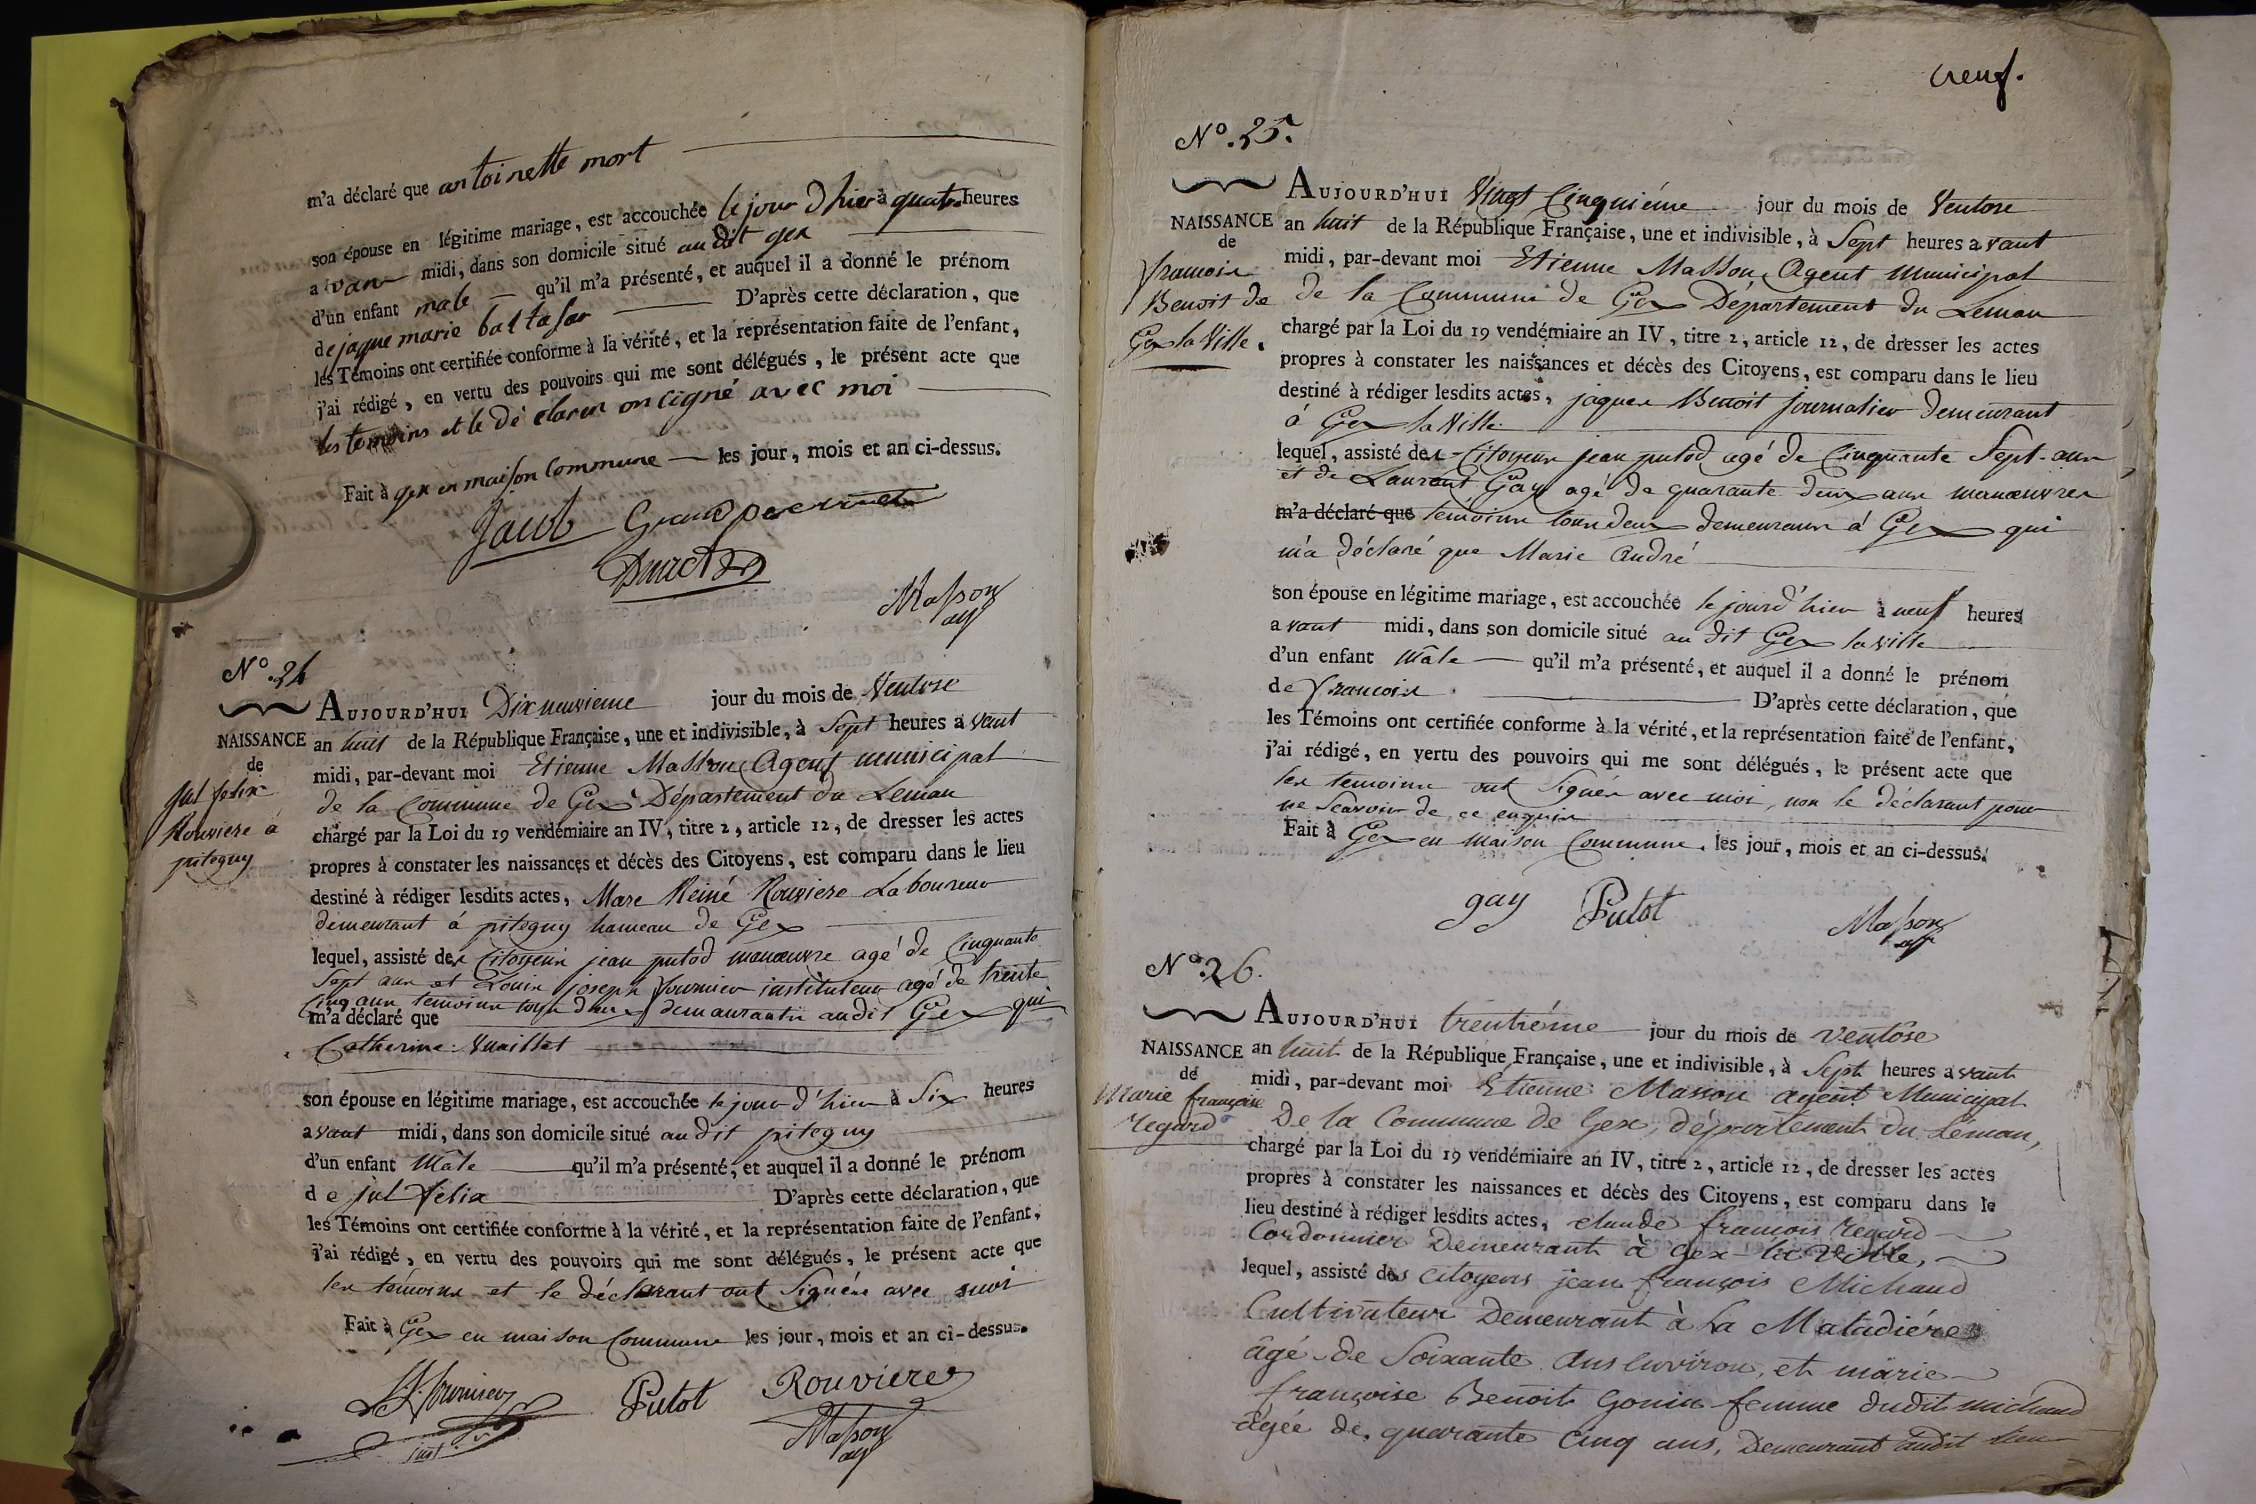 m'a déclaré que antoinette mort
son épouse en légitime mariage, est accouchée le jour d hier à quatre heures
avant midi, dans son domicile situé au dit gex
d'un enfant male qu'il m'a présenté, et auquel il a donné le prénom
de jaque marie baltasar D'après cette déclaration, que
les Témoins ont certifiée conforme à la vérité, et la représentation faite de l'enfant,
j'ai rédigé, en vertu des pouvoirs qui me sont délégués, le présent acte que
les temoins et le dé claren on cigné avec moi
Fait à gex en maison Commune les jour, mois et an ci-dessus.
Jacob
Masson
agt
N° 24
AUJOURD'HUI Dixneuvieme jour du mois de Ventose
NAISSANCE
de
Jul felix
Rouviere à
pitegny
an huit de la République Française, une et indivisible, à Sept heures avant
midi, par-devant moi Etienne Masson Agent municipal
de la Commune de Gex Département du Leman
chargé par la Loi du 19 vendémiaire an IV, titre 2, article 12, de dresser les actes
propres à constater les naissances et décès des Citoyens, est comparu dans le lieu
destiné à rédiger lesdits actes, Marc Reiné Rouviere Laboureur
demeurant à pitegny hameau de Gex
lequel, assisté des Citoyens jean putod manœuvre agé de Cinquante
Sept ans et Louis joseph fournier instituteur agé de trente
Cinq ans temoins tous deux demeurants audit Gex qui
m'a déclaré que
Catherine Vuaillet
son épouse en légitime mariage, est accouchée le jour d'hier à Six heures
avant midi, dans son domicile situé au dit pitegny
d'un enfant Mâle qu'il m'a présenté, et auquel il a donné le prénom
de jul felix D'après cette déclaration, que
les Témoins ont certifiée conforme à la vérité, et la représentation faite de l'enfant,
j'ai rédigé, en vertu des pouvoirs qui me sont délégués, le présent acte que
les témoins et le déclarant ont Signés avec moi
Fait à Gex en maison Commune les jour, mois et an ci-dessus.
L. J. fournier
inst.
Putot
Rouviere
Masson
agt
neuf.
N° 25.
AUJOURD'HUI Vingt Cinquiéme jour du mois de Ventose
NAISSANCE
de
francois
Benoit de
Gex la Ville.
an huit de la République Française, une et indivisible, à Sept heures avant
midi, par-devant moi Etienne Masson Agent Municipal
de la Commune de Gex Département du Leman
chargé par la Loi du 19 vendémiaire an IV, titre 2, article 12, de dresser les actes
propres à constater les naissances et décès des Citoyens, est comparu dans le lieu
destiné à rédiger lesdits actes, jaques Benoit journalier demeurant
à Gex la Ville
lequel, assisté des Citoyens jean putod agé de Cinquante Sept ans
et de Laurent Gay agé de quarante deux ans manœuvres
m'a déclaré que temoins tous deux demeurans à Gex qui
m'a déclaré que Marie André
son épouse en légitime mariage, est accouchée le jourd'hier à neuf heures
avant midi, dans son domicile situé au dit Gex la ville
d'un enfant Mâle qu'il m'a présenté, et auquel il a donné le prénom
de francois D'après cette déclaration, que
les Témoins ont certifiée conforme à la vérité, et la représentation faite de l'enfant,
j'ai rédigé, en vertu des pouvoirs qui me sont délégués, le présent acte que
les temoins ont Signés avec moi, non le déclarant pour
ne Scavoir de ce enquis
Fait à Gex en Maison Commune. les jour, mois et an ci-dessus.
gay
Putot
Masson
agt
N° 26.
AUJOURD'HUI trentiéme jour du mois de Ventôse
NAISSANCE
de
Marie françoise
regard
an huit de la République Française, une et indivisible, à Sept heures avant
midi, par-devant moi Etienne Masson agent Municipal
De la Commune de Gex, département du Léman,
chargé par la Loi du 19 vendémiaire an IV, titre 2, article 12, de dresser les actes
propres à constater les naissances et décès des Citoyens, est comparu dans le
lieu destiné à rédiger lesdits actes, claude françois regard
Cordonnier Demeurant à Gex la Ville,
lequel, assisté des citoyens jean françois Michaud
Cultivateur Demeurant à La Maladiére
âgé de Soixante ans environ, et marie
françoise Benoit Gonin femme dudit michaud
âgée de quarante cinq ans, Demeurant audit lieu